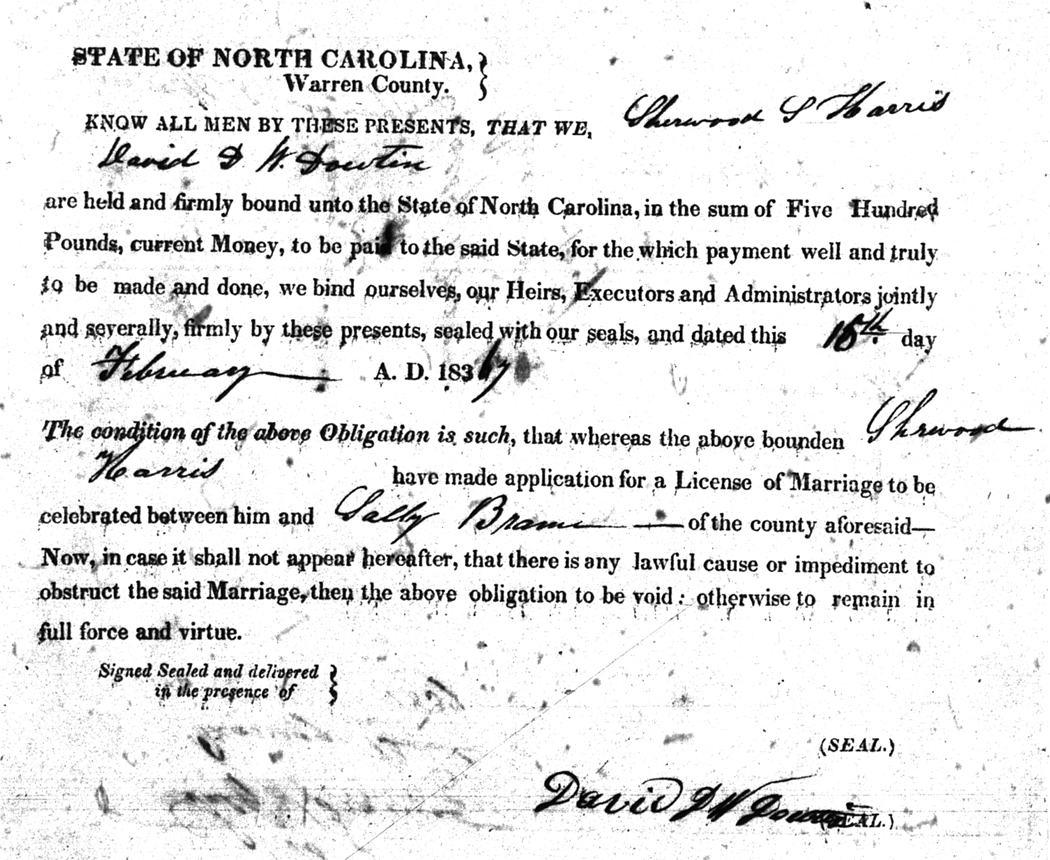 STATE OF NORTH CAROLINA,
Warren County.
KNOW ALL MEN BY THESE PRESENTS, THAT WE, Sherwood S Harris
David D W. Dowtin
are held and firmly bound unto the State of North Carolina, in the sum of Five Hundred
Pounds, current Money, to be paid to the said State, for the which payment well and truly
to be made and done, we bind ourselves, our Heirs, Executors and Administrators jointly
and severally, firmly by these presents, sealed with our seals, and dated this 15th day
of February A. D. 183
The condition of the above Obligation is such, that whereas the above bounden Sherwood
Harris have made application for a License of Marriage to be
celebrated between him and Sally Brame — of the county aforesaid—
Now, in case it shall not appear hereafter, that there is any lawful cause or impediment to
obstruct the said Marriage, then the above obligation to be void: otherwise to remain in
full force and virtue.
Signed Sealed and delivered
in the presence of
(SEAL.)
David D W (SEAL.)